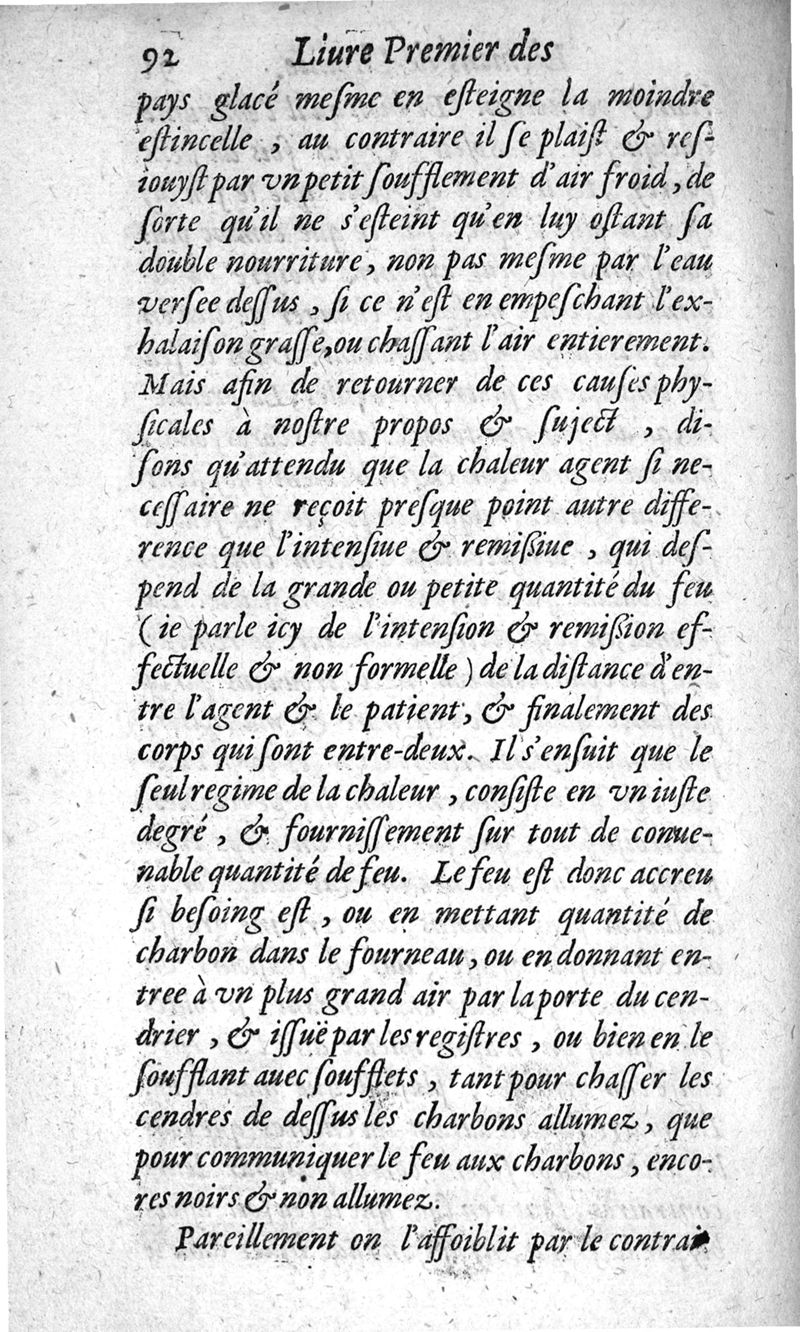 92 Liure Premier des
pays glacé meſme en eſteigne la moindre
eſtincelle , au contraire il ſe plaiſt & reſ-
iouyſt par vn petit ſoufflement d'air froid, de
ſorte qu'il ne s'eſteint qu'en luy oſtant ſa
double nourriture, non pas meſme par l'eau
verſee deſſus , ſi ce n'eſt en empeſchant l'ex-
halaiſon graſſe, ou chaſſant l'air entierement.
Mais afin de retourner de ces cauſes phy-
ſicales à noſtre propos & ſuject , di-
ſons qu'attendu que la chaleur agent ſi ne-
ceſſaire ne reçoit preſque point autre diffe-
rence que l'intenſiue & remiſſiue , qui deſ-
pend de la grande ou petite quantité du feu
( ie parle icy de l'intenſion & remiſſion ef-
fectuelle & non formelle ) de la diſtance d'en-
tre l'agent & le patient, & finalement des
corps qui ſont entre-deux. Il s'enſuit que le
ſeul regime de la chaleur , conſiſte en vn iuſte
degré , & fourniſſement ſur tout de conue-
nable quantité de feu. Le feu eſt donc accreu
ſi beſoing eſt , ou en mettant quantité de
charbon dans le fourneau, ou en donnant en-
tree à vn plus grand air par la porte du cen-
drier , & iſſuë par les regiſtres , ou bien en le
ſoufflant auec ſoufflets , tant pour chaſſer les
cendres de deſſus les charbons allumez, que
pour communiquer le feu aux charbons , enco-
res noirs & non allumez.
Pareillement on l'affoiblit par le contrai